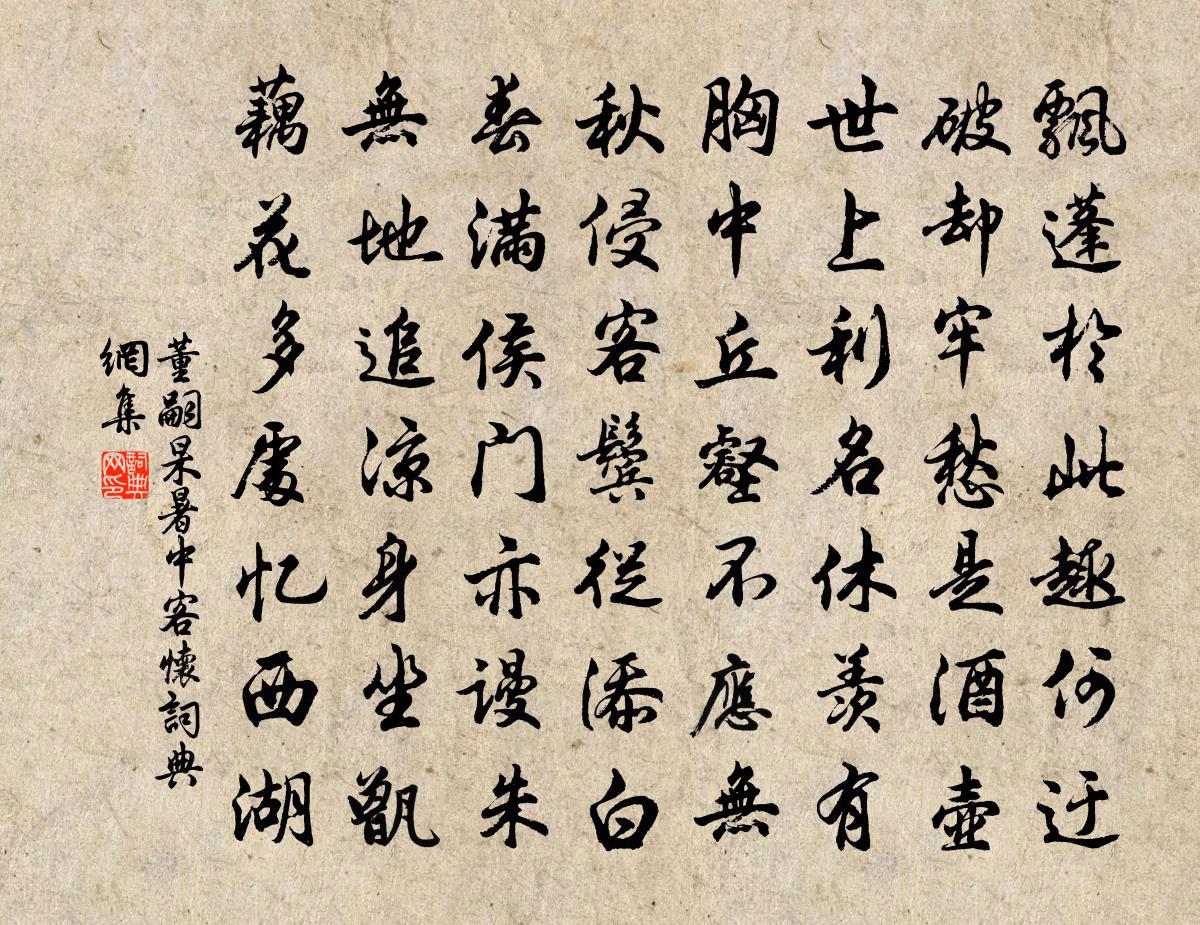 飄蓬於此趣何迂
破却牢愁是酒壺
世上利名休羨有
胸中丘壑不應無
秋侵客鬢從添白
春滿侯門亦謾朱
無地追涼身坐甑
藕花多處憶西湖
董嗣杲暑中客懷詞典
網集
詞典网印